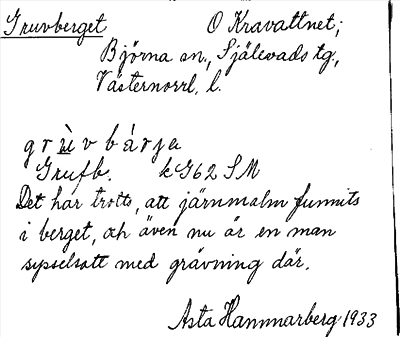 Gruvberget O Kravattnet;
Björna sn., Själevads tg.,
Västernorrl. l.
grùvbárja
Grufb. kG62 SM
Det har trotts, att järnmalm funnits
i berget, och även nu är en man
sysselsatt med grävning där.
Asta Hammarberg 1933